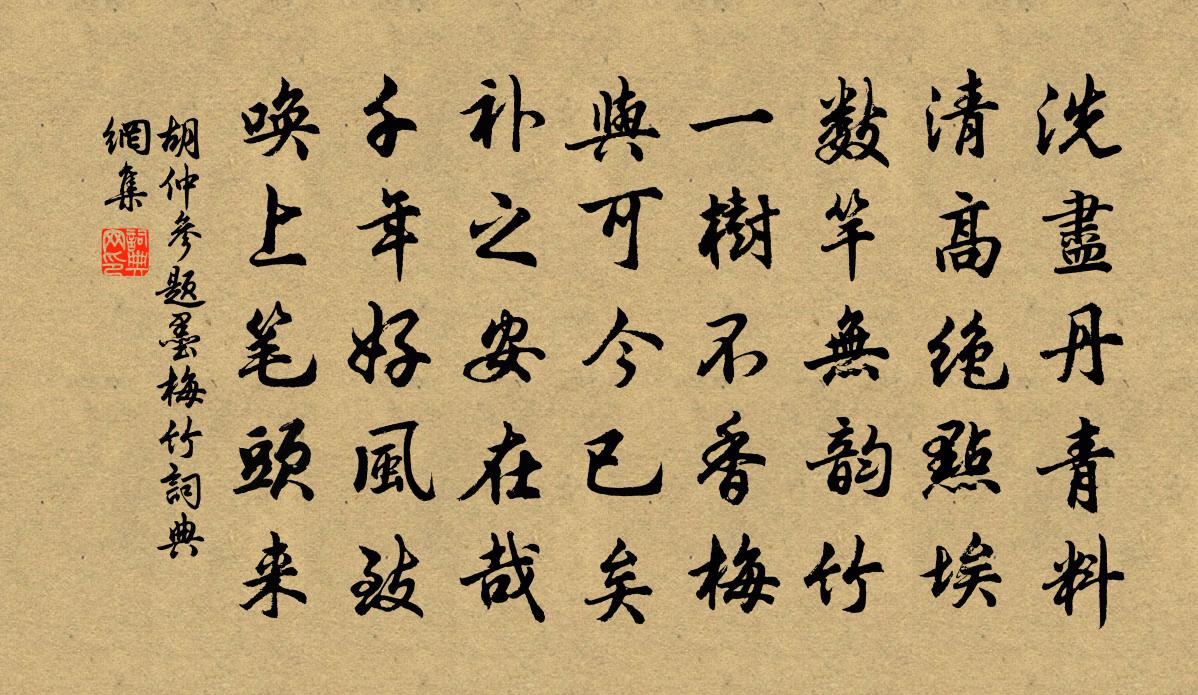 洗盡丹青料
清高绝點埃
数竿無韵竹
一樹不香梅
與可今已矣
补之安在哉
千年好風致
唤上笔頭来
胡仲參题墨梅竹詞典
網集
詞典
网印